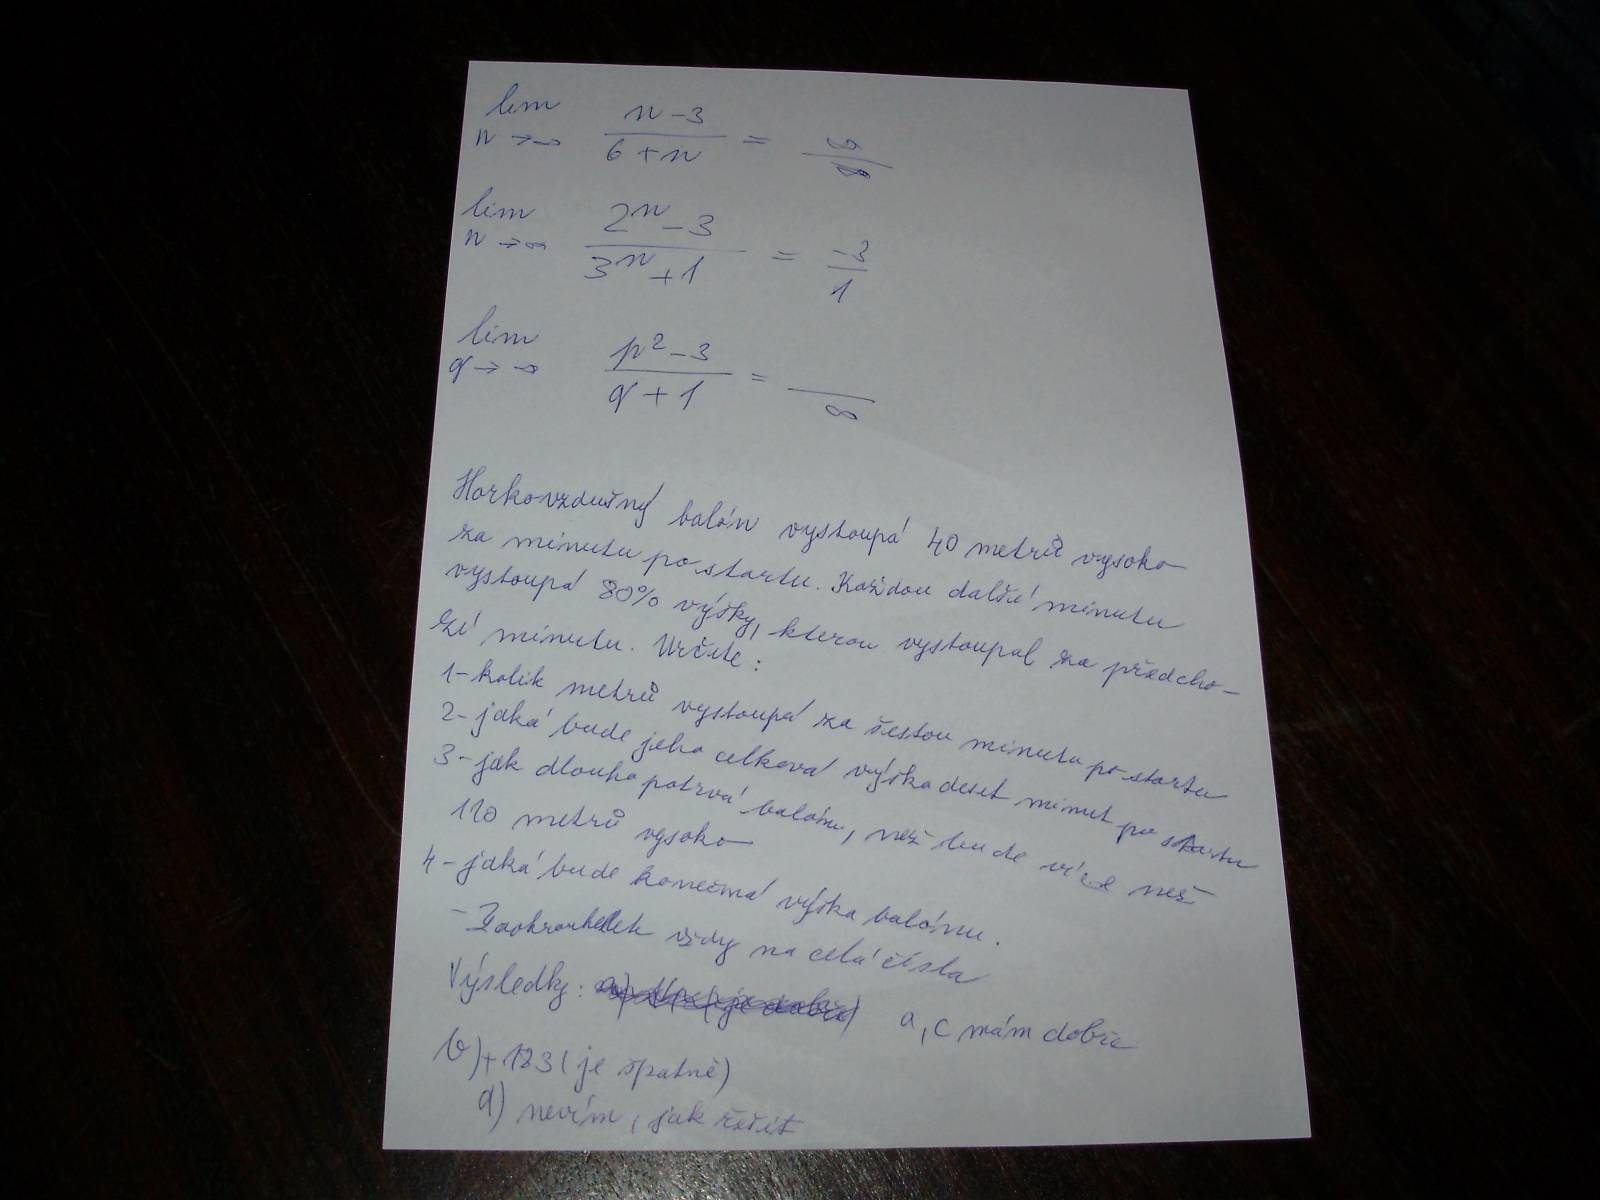 lim n→∞ (n-3)/(6+n) = ∞/∞
lim n→∞ (2^n-3)/(3^n+1) = -3/1
lim q→∞ (p²-3)/(q+1) = /∞
Horkovzdušný balón vystoupá 40 metrů vysoko
za minutu po startu. Každou další minutu
vystoupá 80% výšky, kterou vystoupal za předcho-
zí minutu. Určete:
1-kolik metrů vystoupá za šestou minutu po startu
2-jaká bude jeho celková výška deset minut po startu
3-jak dlouho potrvá balónu, než bude více než
120 metrů vysoko
4-jaká bude konečná výška balónu.
- vždy na celá čísla
Výsledky: a, c mám dobře
b)+183(je špatně)
d) nevím, jak řešit